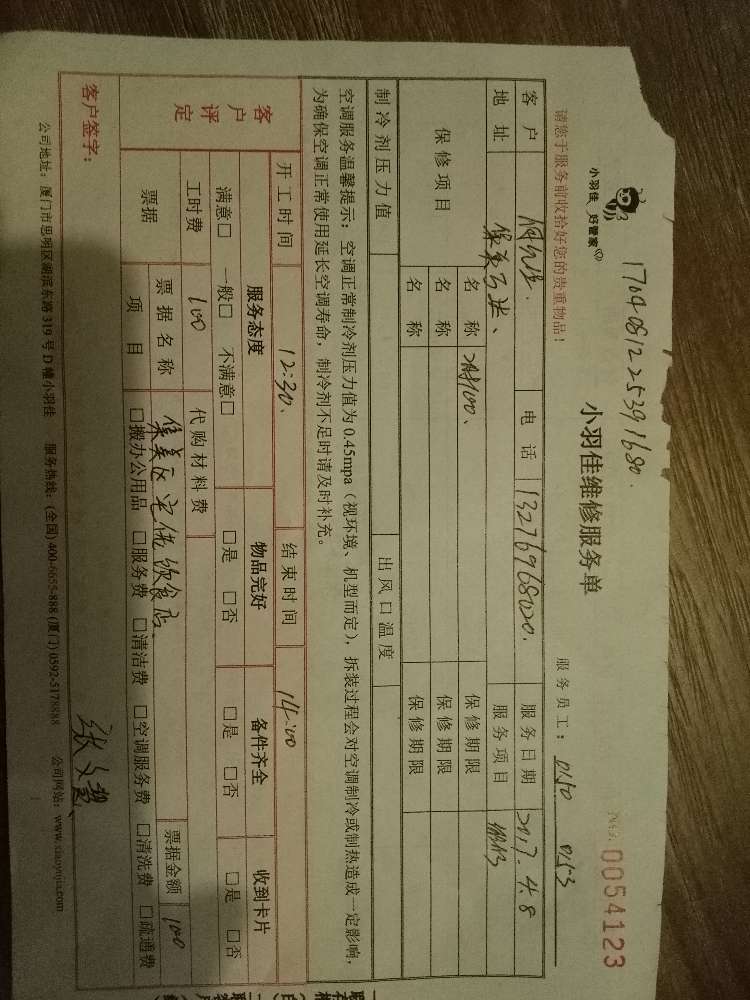 1704081225391680.
小羽佳 好管家
小羽佳维修服务单
No: 0054123
请您于服务前收拾好您的贵重物品!
服务员工: 0150 0153
客户 电话 13276968020. 服务日期 2017.4.8
地址 集美 服务项目
保修项目 名称 保修期限
名称 保修期限
名称 保修期限
制冷剂压力值 出风口温度
空调服务温馨提示:空调正常制冷剂压力值为0.45mpa(视环境、机型而定),拆装过程会对空调制冷或制热造成一定影响,
为确保空调正常使用延长空调寿命,制冷剂不足时请及时补充。
开工时间 12:30. 结束时间 14:00
客户评定 服务态度 物品完好 备件齐全 收到卡片
满意□ 一般□ 不满意□ □是 □否 □是 □否 □是 □否
工时费 100 代购材料费
票据 票据名称 集美区 饮食店 票据金额 100
项目 □搬办公用品 □服务费 □清洁费 □空调服务费 □清洗费 □疏通费
客户签字:
公司地址:厦门市思明区湖滨东路319号D幢小羽佳 服务热线:(全国)400-6655-888 (厦门)0592-5178888 公司网站:www.xiaoyujia.com